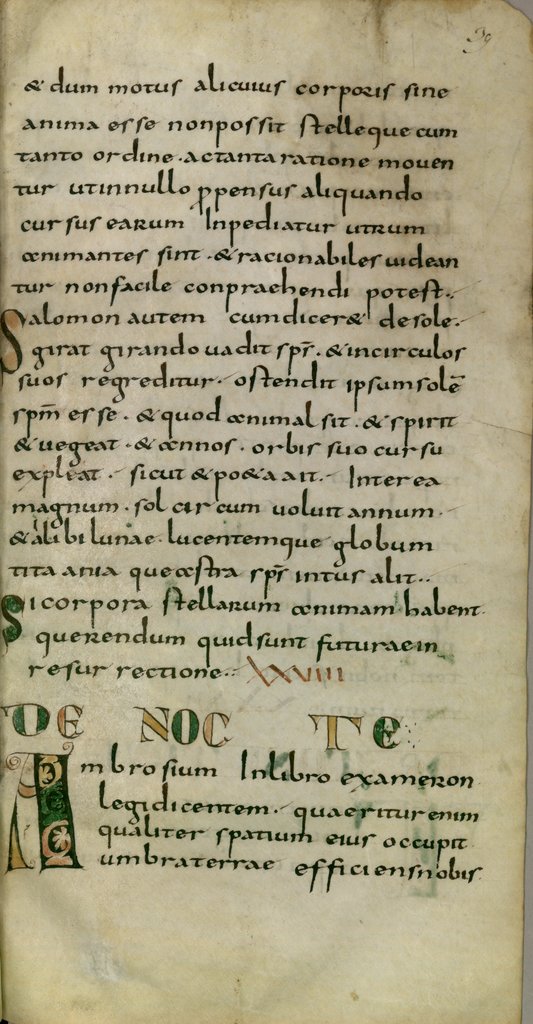 39
& dum motus alicuius corporis sine
anima esse nonpossit stelleque cum
tanto ordine · actanta ratione moven
tur ut innullo ꝓpensus aliquando
cursus earum Inpediatur utrum
animantes sint · & racionabiles uidean
tur nonfacile conpraehendi potest ·,
Salomon autem cumdicer& desole ·
girat girando uadit spr̄ · & incirculos
suos regreditur · ostendit ipsum solē
spm̄ esse · & quod animal sit · & spirit
& uegeat · & annos · orbis suo cursu
expleat · sicut & po&a ait · Interea
magnum · sol circum uoluit annum ·
& alibi lunae · lucentemque globum
titaania queastra spr̄ intus alit ··
Sicorpora stellarum animam habent
querendum quid sunt futurae in
resurrectione ·· XXVIII
DE NOCTE
Ambrosium Inlibro exameron
legi dicentem · quaeritur enim
qualiter spatium eius occupit
umbra terrae efficiens nobis